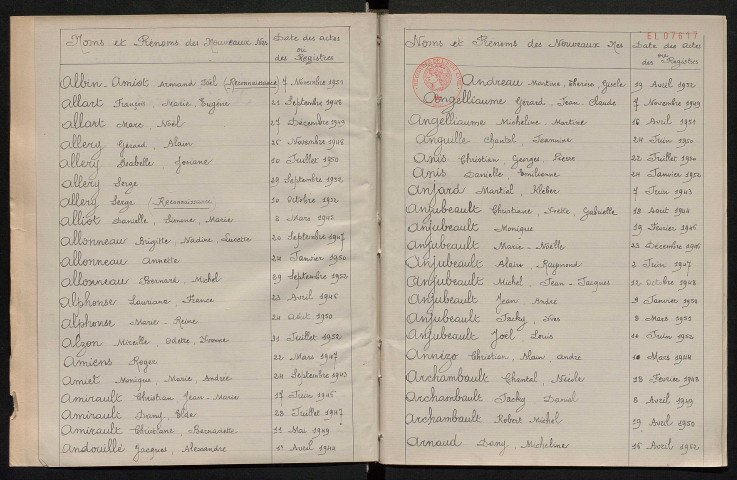 Noms et Prénoms des Nouveaux Nés
Date des actes
ou
des Registres
Albin-Amiot Armand Joël (Reconnaissance) 7 Novembre 1951
Allart François, Marie, Eugène 21 Septembre 1948
Allart Marc, Noël 27 Décembre 1949
Allery Gérard, Alain 26 Novembre 1948
Allery Isabelle, Josiane 10 Juillet 1950
Allery Serge 29 Septembre 1952
Allery Serge (Reconnaissance) 10 Octobre 1952
Alliot Danielle, Simone, Marie 8 Mars 1943
Allonneau Brigitte, Nadine, Lucette 20 Septembre 1947
Allonneau Annette 24 Janvier 1950
Allonneau Bernard, Michel 29 Septembre 1952
Alphonse Lauriane, France 23 Avril 1946
Alphonse Marie-Reine 24 Août 1950
Alzon Mireille, Odette, Yvonne 11 Juillet 1952
Amiens Roger 22 Mars 1947
Amiet Monique, Marie, Andrée 24 Septembre 1943
Amirault Christian, Jean-Marie 17 Juin 1946
Amirault Dany, 28 Juillet 1947
Amirault Christiane, Bernadette 11 Mai 1949
Andouillé Jacques, Alexandre 1er Avril 1944
EL07817
Noms et Prénoms des Nouveaux Nés
Date des actes
ou
des Registres
Andreau Martine, Thérèse, Gisèle 19 Avril 1952
Angelliaume Gérard, Jean-Claude 7 Novembre 1949
Angelliaume Micheline, Martine 16 Avril 1951
Anguille Chantal, Jeannine 24 Juin 1950
Anis Christian, Georges, Pierre 22 Juillet 1950
Anis Danielle, Emilienne 24 Janvier 1952
Anjard Martial, Kléber 7 Juin 1943
Anjubeault Christiane, Yvette, Gabrielle 12 Août 1944
Anjubeault Monique 19 Février 1946
Anjubeault Marie-Noëlle 23 Décembre 1946
Anjubeault Alain, Raymond 2 Juin 1947
Anjubeault Michel, Jean-Jacques 12 Octobre 1948
Anjubeault Jean, André 9 Janvier 1950
Anjubeault Jacky, Yves 8 Mars 1951
Anjubeault Joël, Louis 10 Juin 1952
Annézo Christian, Alain, André 10 Mars 1944
Archambault Chantal, Nicole 18 Février 1948
Archambault Jacky, Daniel 8 Avril 1949
Archambault Robert Michel 19 Avril 1950
Arnaud Dany, Micheline 15 Avril 1952